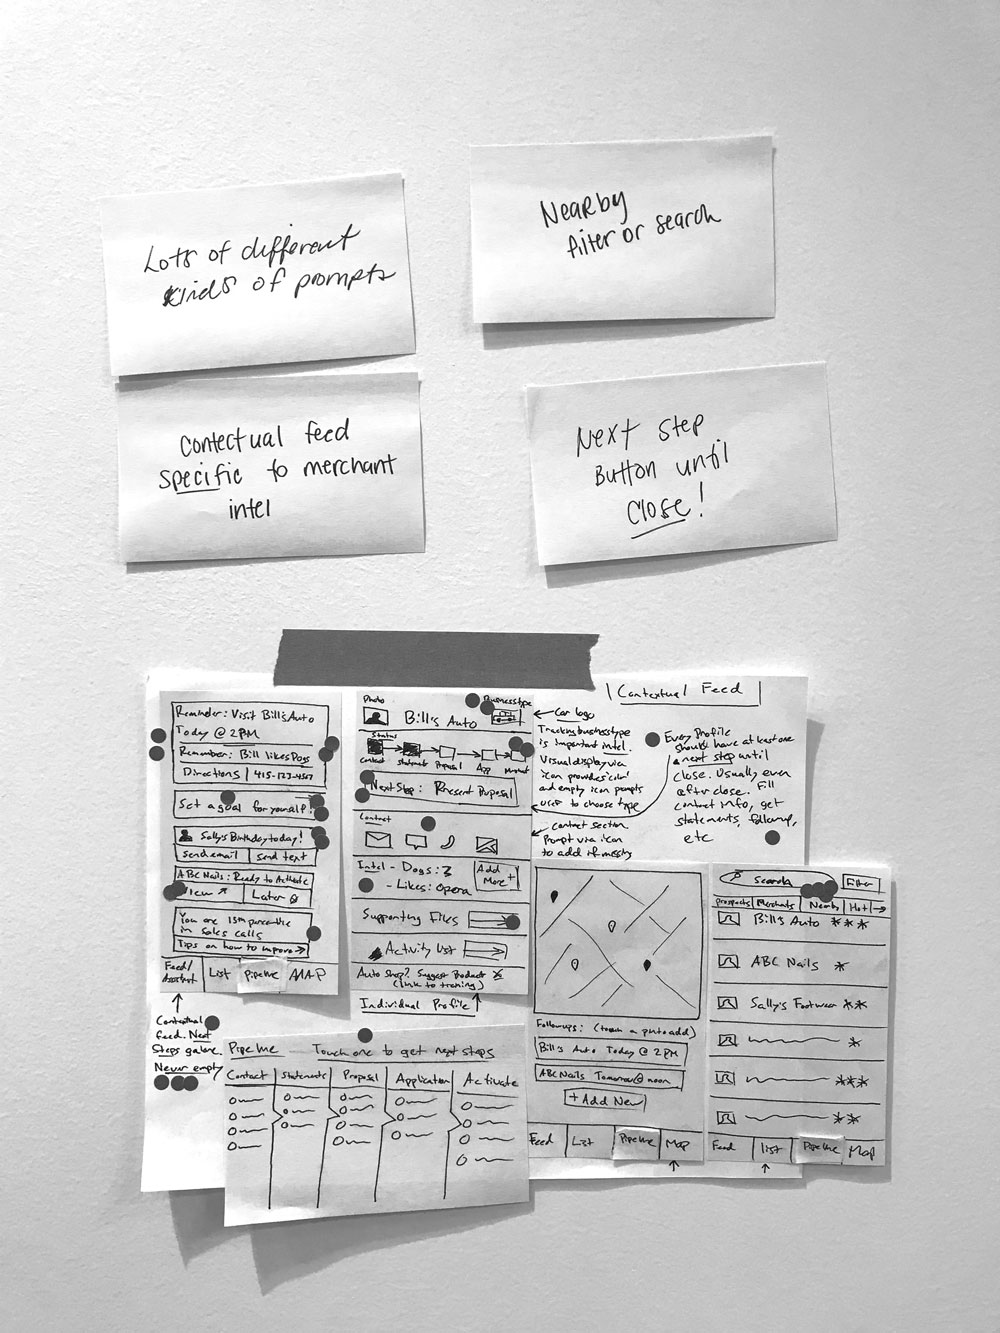 Lots of different
kinds of prompts
Nearby
filter or search
Contectual feed
specific to merchant
intel
Next step
Button until
close!
Contextual Feed
Reminder: Visit Bill's Auto
Today @ 2PM
Remember: Bill likes Dogs
Directions | 415-123-4567
Set a goal for yourself!
Sally's Birthday today!
Send email | Send text
ABC Nails: Ready to Activate
View
Later
You are 15th percentile
in sales calls
Tips on how to improve
Feed/
Assistant
List
Pipeline
MAP
Contextual
feed. Next
Steps galore.
Never empty
Photo
Business type
Bill's Auto
Status
Contact
Statements
Proposal
App
Merchant
Next Step: Present Proposal
Contact
Intel - Dogs: 3
- Likes: Opera
Add
More +
Supporting Files
Activity list
Auto Shop? Suggest Product X
(link to training)
Individual Profile
Car logo
Tracking business type
is important intel.
Visual display via
icon provides color
and empty icon prompts
user to choose type
Contact section
Prompt via icon
to add if missing
Every Profile
should have at least one
next step until
close. Usually even
after close. Fill
contact info, get
statements, follow up,
etc
Pipeline - Touch one to get next steps
Contact
Statements
Proposal
Application
Activate
Followups: (touch a pin to add)
Bill's Auto Today @ 2PM
ABC Nails Tomorrow @ noon
+ Add New
Feed
List
Pipeline
Map
Search
Filter
Prospects
Merchants
Nearby
Hot
Bill's Auto ***
ABC Nails *
Sally's Footwear **
*
***
**
Feed
list
Pipeline
Map